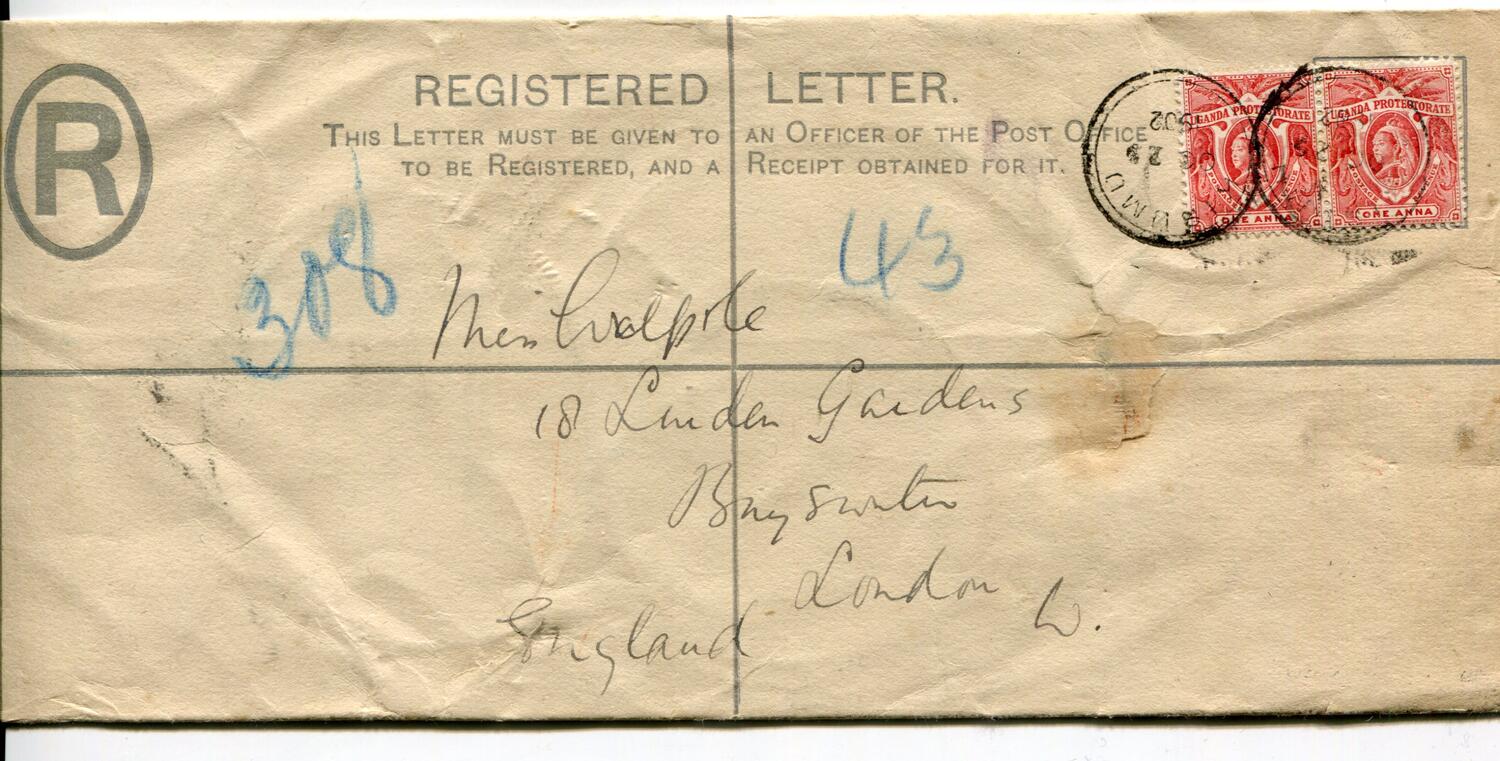 R
REGISTERED LETTER.
THIS LETTER MUST BE GIVEN TO AN OFFICER OF THE POST OFFICE
TO BE REGISTERED, AND A RECEIPT OBTAINED FOR IT.
UGANDA PROTECTORATE
POSTAGE
ONE ANNA
UGANDA PROTECTORATE
POSTAGE
ONE ANNA
308
43
Miss Walpole
18 Linden Gardens
Bayswater
London W.
England